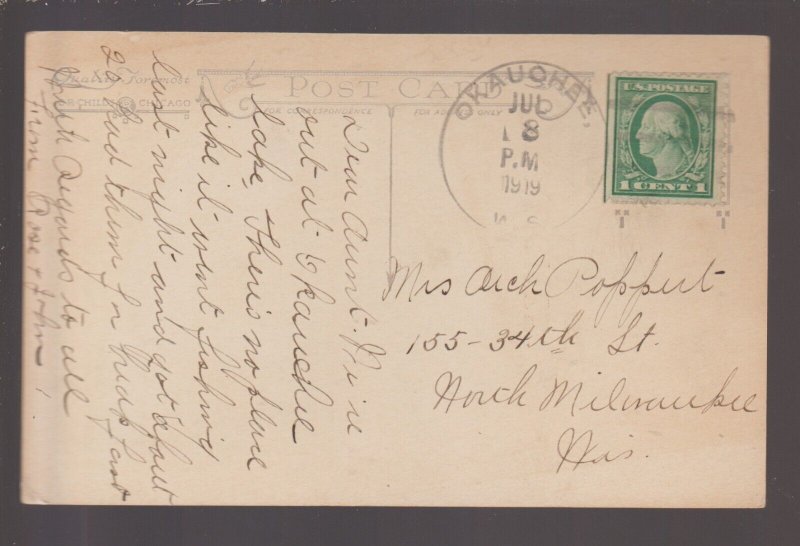 POST CARD
FOR CORRESPONDENCE
FOR ADDRESS ONLY
CHICAGO
OKAUCHEE,
JUL
8
P.M
1919
WIS
U.S. POSTAGE
1 CENT 1
Dear Aunt. We're
out at Okauchee
lake, Theris no place
like it went fishing
last night and got about
20 had them for breakfast
Best Regards to all
from Rose & John
Mrs Arch Poppert
155-34th St.
North Milwaukee
Wis.